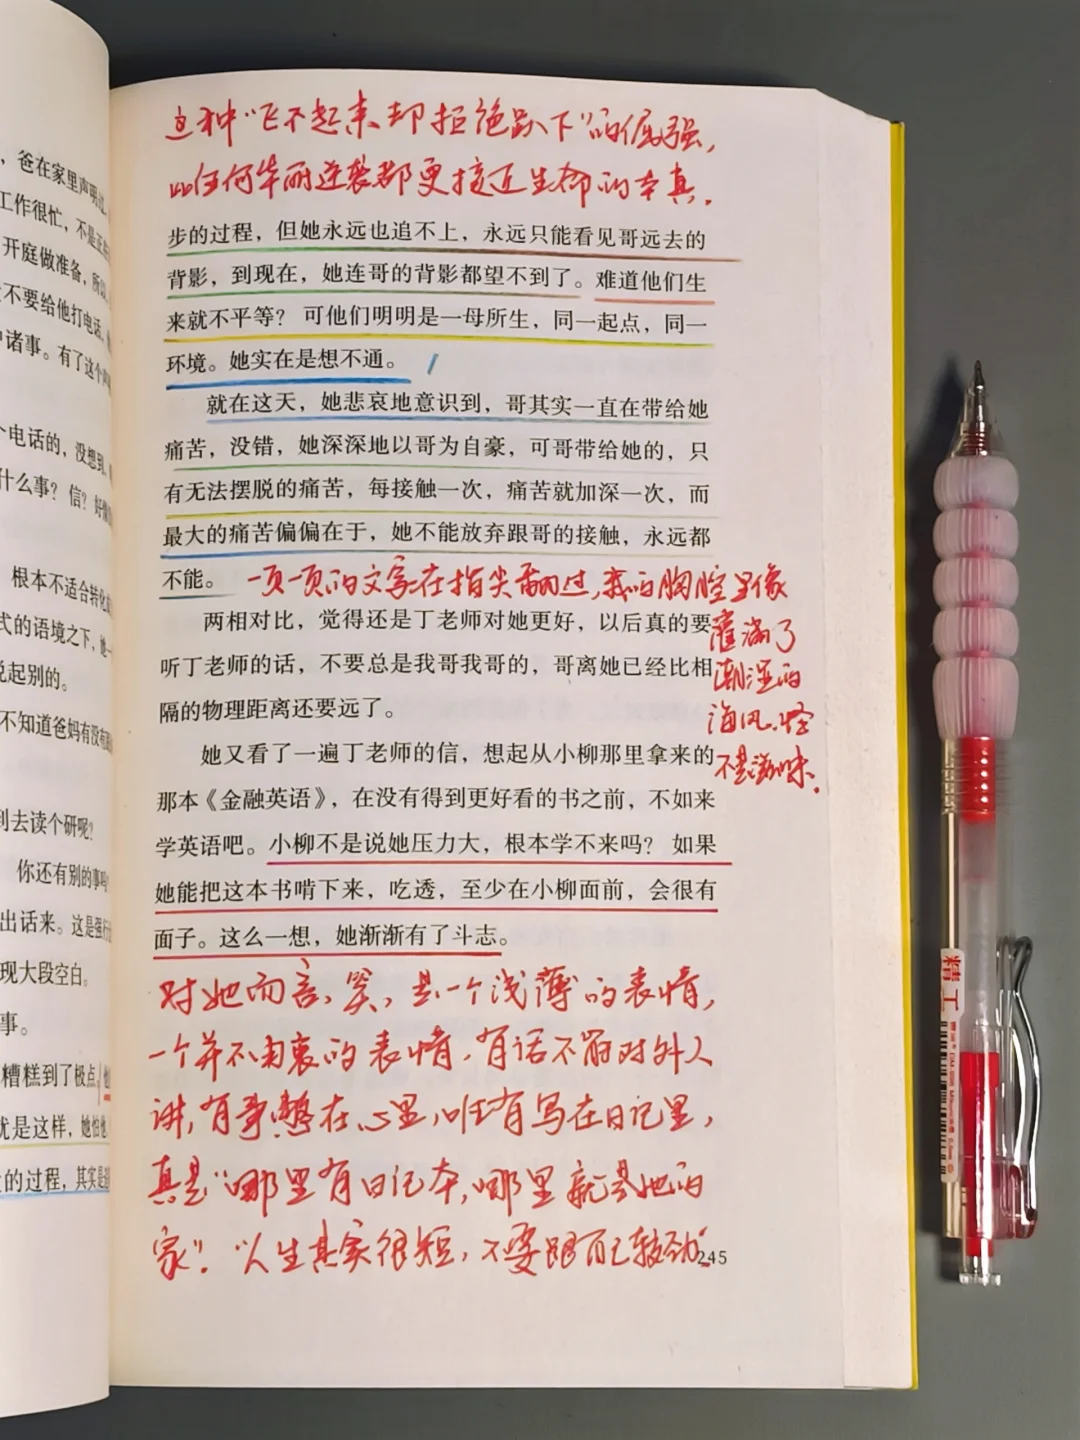 ，爸在家里声明过，
工作很忙，不是
开庭做准备，所以
不要给他打电话，
诸事。有了这个
个电话的，没想到，
什么事？信？好像
根本不适合转化
式的语境之下，她一
说起别的。
不知道爸妈有没有
到去读个研呢？
你还有别的事吗
出话来。这是强行
现大段空白。
事。
糟糕到了极点，他
就是这样，她怕他
的过程，其实是
这种“飞不起来却拒绝趴下”的倔强，
比任何华丽逆袭都更接近生命的本真。
步的过程，但她永远也追不上，永远只能看见哥远去的
背影，到现在，她连哥的背影都望不到了。难道他们生
来就不平等？可他们明明是一母所生，同一起点，同一
环境。她实在是想不通。
就在这天，她悲哀地意识到，哥其实一直在带给她
痛苦，没错，她深深地以哥为自豪，可哥带给她的，只
有无法摆脱的痛苦，每接触一次，痛苦就加深一次，而
最大的痛苦偏偏在于，她不能放弃跟哥的接触，永远都
不能。
一页一页的文字在指尖翻过，我的胸腔里像
灌满了
潮湿的
海风，怪
不是滋味。
两相对比，觉得还是丁老师对她更好，以后真的要
听丁老师的话，不要总是我哥我哥的，哥离她已经比相
隔的物理距离还要远了。
她又看了一遍丁老师的信，想起从小柳那里拿来的
那本《金融英语》，在没有得到更好看的书之前，不如来
学英语吧。小柳不是说她压力大，根本学不来吗？如果
她能把这本书啃下来，吃透，至少在小柳面前，会很有
面子。这么一想，她渐渐有了斗志。
对她而言，笑，是一个浅薄的表情，
一个并不由衷的表情，有话不能对外人
讲，有事憋在心里，唯有写在日记里，
真是“哪里有日记本，哪里就是她的
家”。“人生其实很短，不要跟自己较劲”。
245
精工